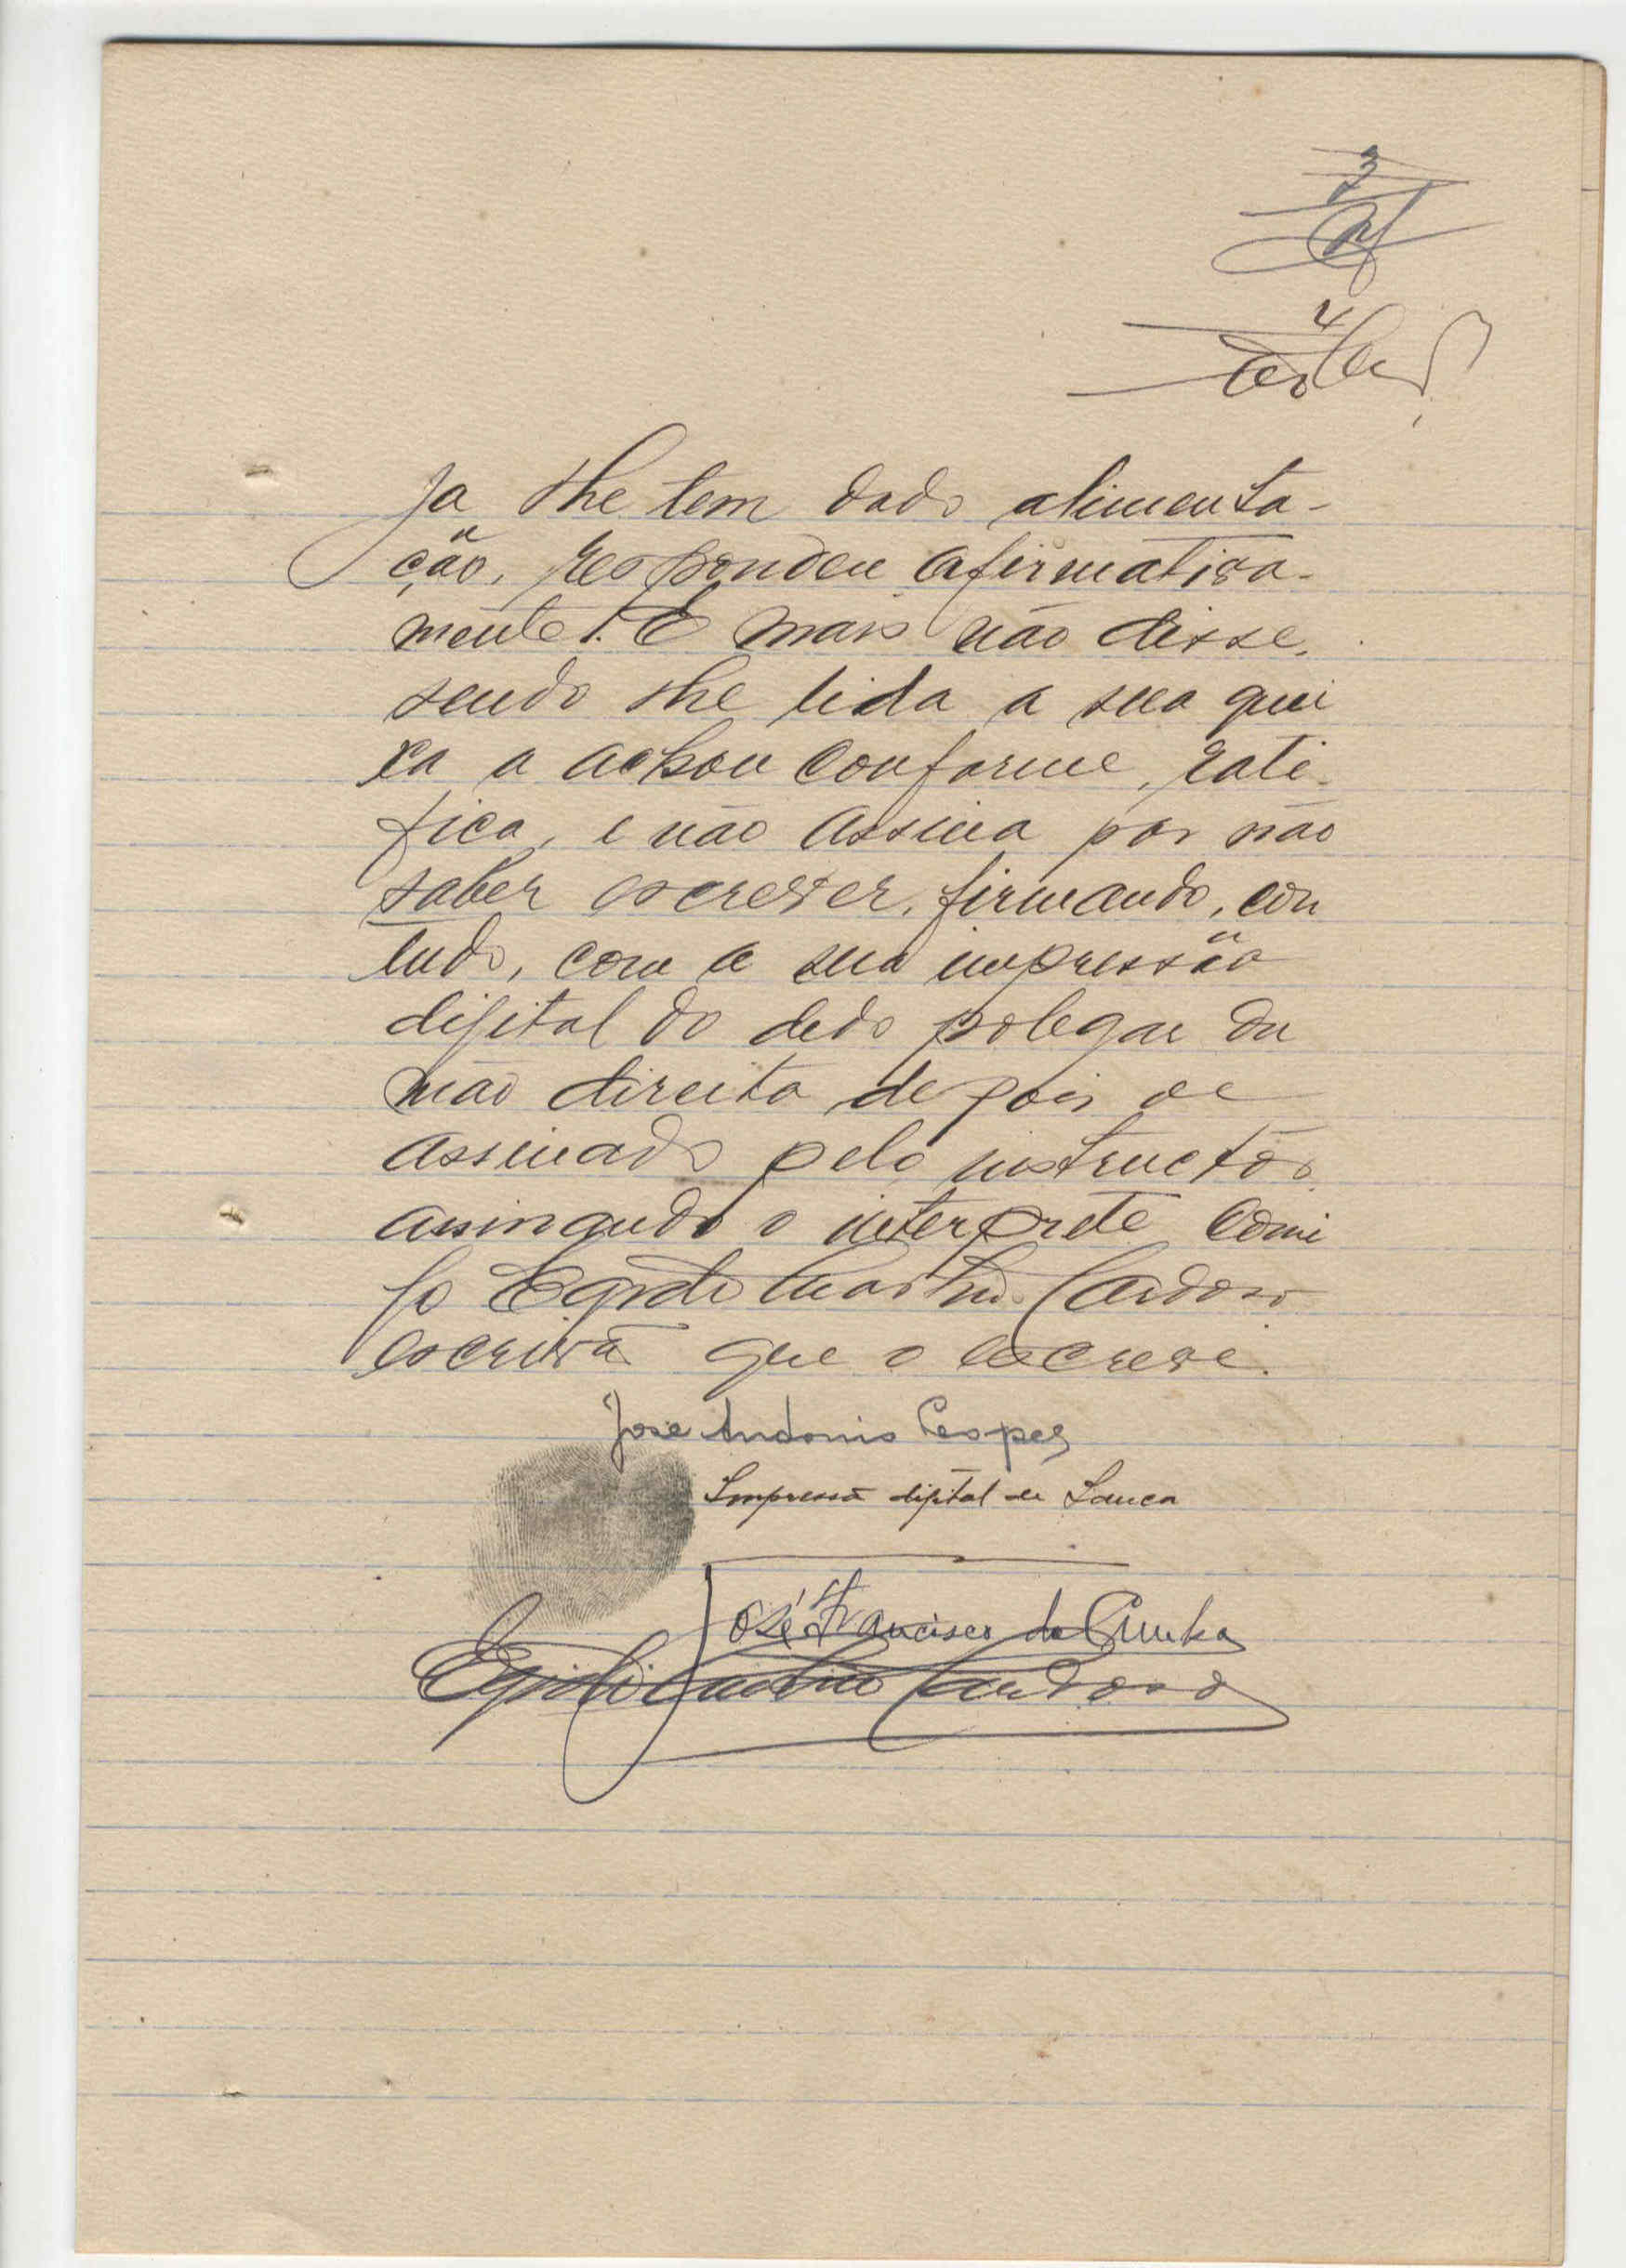 3
4
ja lhe tem dado alimenta-
ção, respondeu afirmativa-
mente. E mais não disse,
sendo lhe lida a sua quei
xa a achou conforme, rati-
fica, e não assina por não
saber escrever, firmando, con
tudo, com a sua impressão
dijital do dedo polegar da
mão direita depois de
assinado pelo instructor
assinando o interprete comi
go Egidio Cardoso
escrivão que o escreve.
José Antonio Lopes
Impressã dijital de Lanca
José Francisco da Cunha
Egidio Cardoso